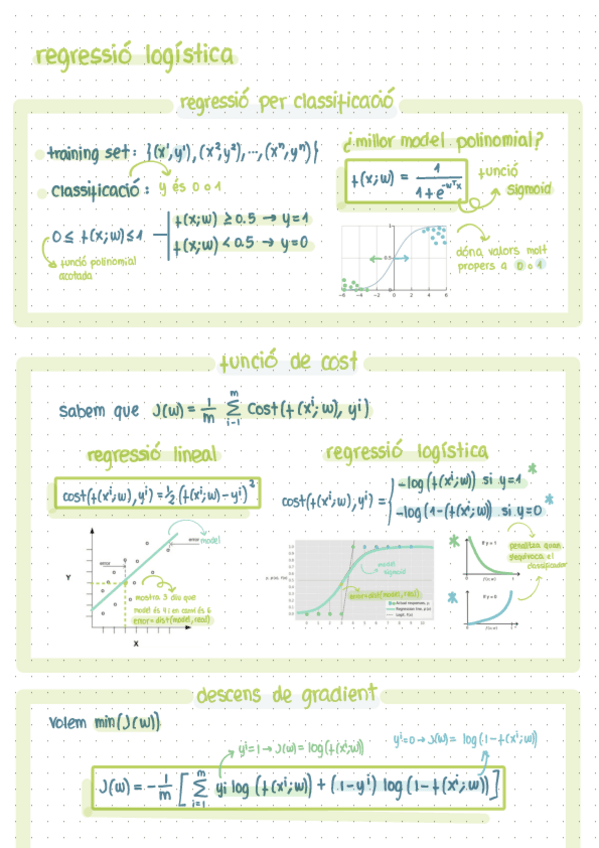 regressió logística
regressió per classificació
training set: {(x¹,y¹), (x²,y²), ..., (xⁿ,yⁿ)}
classificació: y és 0 o 1
0 ≤ f(x;w) ≤ 1
f(x;w) ≥ 0.5 → y=1
f(x;w) < 0.5 → y=0
funció polinomial
acotada
¿millor model polinomial?
f(x;w) = 1 / (1+e^(-wᵀx))
funció
sigmoid
dóna valors molt
propers a 0 o 1
1
0.5
0
-6 -4 -2 0 2 4 6
funció de cost
sabem que J(w) = 1/m Σ (i-1, m) Cost(f(xⁱ;w), yⁱ)
regressió lineal
cost(f(xⁱ;w), yⁱ) = ½ (f(xⁱ;w) - yⁱ)²
error
error
model
Y
X
mostra 3 diu que
error=dist(model, real)
regressió logística
cost(f(xⁱ;w), yⁱ) =
-log(f(xⁱ;w)) si y=1 *
-log(1-(f(xⁱ;w)) si y=0 *
model
sigmoid
error=dist(model, real)
* If y = 1
* If y = 0
penalitza quan
s'equivoca el
classificador
descens de gradient
Volem min(J(w))
yⁱ=1 → J(w) = log(f(xⁱ;w))
yⁱ=0 → J(w) = log(1-f(xⁱ;w))
J(w) = -1/m [Σ (i=1, m) yi log (f(xⁱ;w)) + (1-yⁱ) log (1-f(xⁱ;w))]